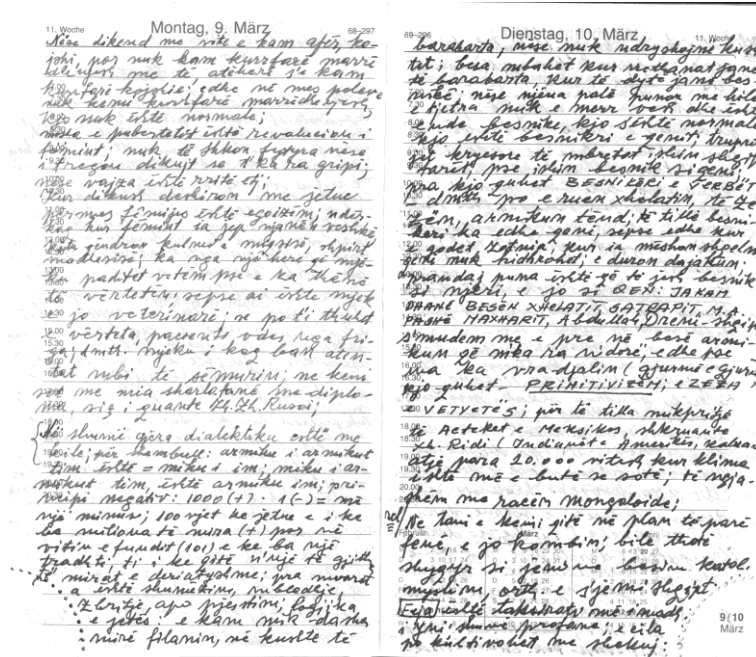 11. Woche Montag, 9. März 68–297
Nëse dikend me vite e kam afër, ko-
jshi, por nuk kam kurrfarë marrë
dhënjes me të, atëherë s'e kam
kurrfarë kojshie; edhe në mes
nuk kemi kurrfarë marrëdhënjesh,
kjo nuk është normale;
mosha e pubertetit është revolucion i
fëmiut; nuk të shkon fytyra nëse
i tregon dikujt se t'ka ra gripi;
nëse vajza është rritë etj;
kur dikush dëshiron me jetue
përmes fëmijës është egoizëm; ndër-
kaq kur fëmiut ia jep njanën veshkë
këtu qëndron kulmi i
ka nga njëherë që mje-
ku paditet vetëm pse e ka thanë
të vërtetën; sepse ai është mjek
jo veterinar; se po t'i thuhet
e vërteta, pacienti vdes nga fri-
ga; dmth. mjeku i keq ban aten-
tat mbi të sëmurin; ne kem
me mia sharlatanë me diplo-
ma, siç i quante Zh. Zh. Rusoi;
Në shumë gjëra dialektika është me
për shembull: armiku i armikut
tim është = miku i im; miku i ar-
mikut tim, është armiku im; pri-
ncipi negativ: 1000 (+) · 1 (–) = me
një minus; 100 vjet ke jetue e i ke
ba miliona të mira (+) por në
vitin e fundit (101) e ke ba një
tradhti, ti i ke qitë n'ujë të gjitha
të mirat e deriatyshme; pra mvaret
a është shumëzim, mbledhje,
zbritje, apo pjestim, logjika
e jetës; e kam nuk dasha
mirë filanin, në kushte të
69–296 Dienstag, 10. März 11. Woche
barabarta, nëse nuk ndryshojnë kush
tet; besa mbahet kur janë
të barabarta, kur të dytë janë bes-
nikë; nëse njena palë punon me hile
e tjetra nuk e merr vesh dhe është
ende besnike, kjo s'është normale
kjo është besnikëri e qenit; trupro-
jet kryesore të mbretit ishin
pse ishin besnik si qeni;
pra kjo quhet BESNIKËRI E VERBËR
– dmth. po e ruen xhelatin, të ze-
zën, armikun tënd; të tillë besni-
këri ka edhe qeni, sepse edhe kur
e godet zotnia, kur ia mëshon shqelm
qeni nuk hidhrohet, e duron dajakun;
prandaj puna është që të jesh besnik
si njeri, e jo si QEN: JA KAM
DHANË BESËN XHELATIT, SATRAPIT, M.A.
PASHË MAXHARIT, Abdullah Dreni-Shqip
s'mundem me e pre në besë armi-
kun që m'ka ra n'dorë, edhe pse
ma ka vra djalin (gjurmë e gjurmë
kjo quhet PRIMITIVIZËM, e ZEZA
e VETVETËS; për të tilla
të Actekët e Meksikës, shkruante
Xh. Ridi (Indianët e Amerikës, kaluan
atje para 20.000 vitesh kur klima
ishte ma e butë se sot; të ngja-
shëm me racën mongoloide;
Ne tani e kemi qitë në plan të parë
fenë, e jo kombin; bile thotë
shqyqyr që jemi me besim katol.
myslim, orto, e s'jemi shqipt
Feja është taksirati ma i madh
i
po kultivohet me shekuj.
9/10
März